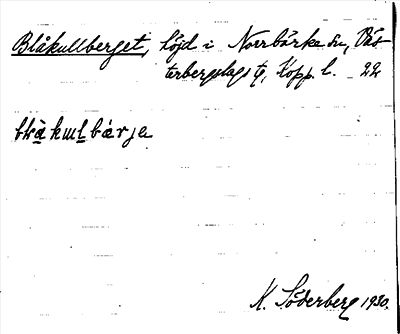 Blåkullberget, höjd i Norrbärke sn, Väs-
terbergslags tg, Kopp. l. 22
blàkulbärja
K. Söderberg 1930.